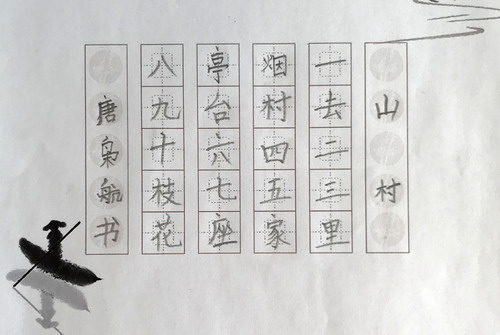 山村
一去二三里
烟村四五家
亭台六七座
八九十枝花
唐枭航书